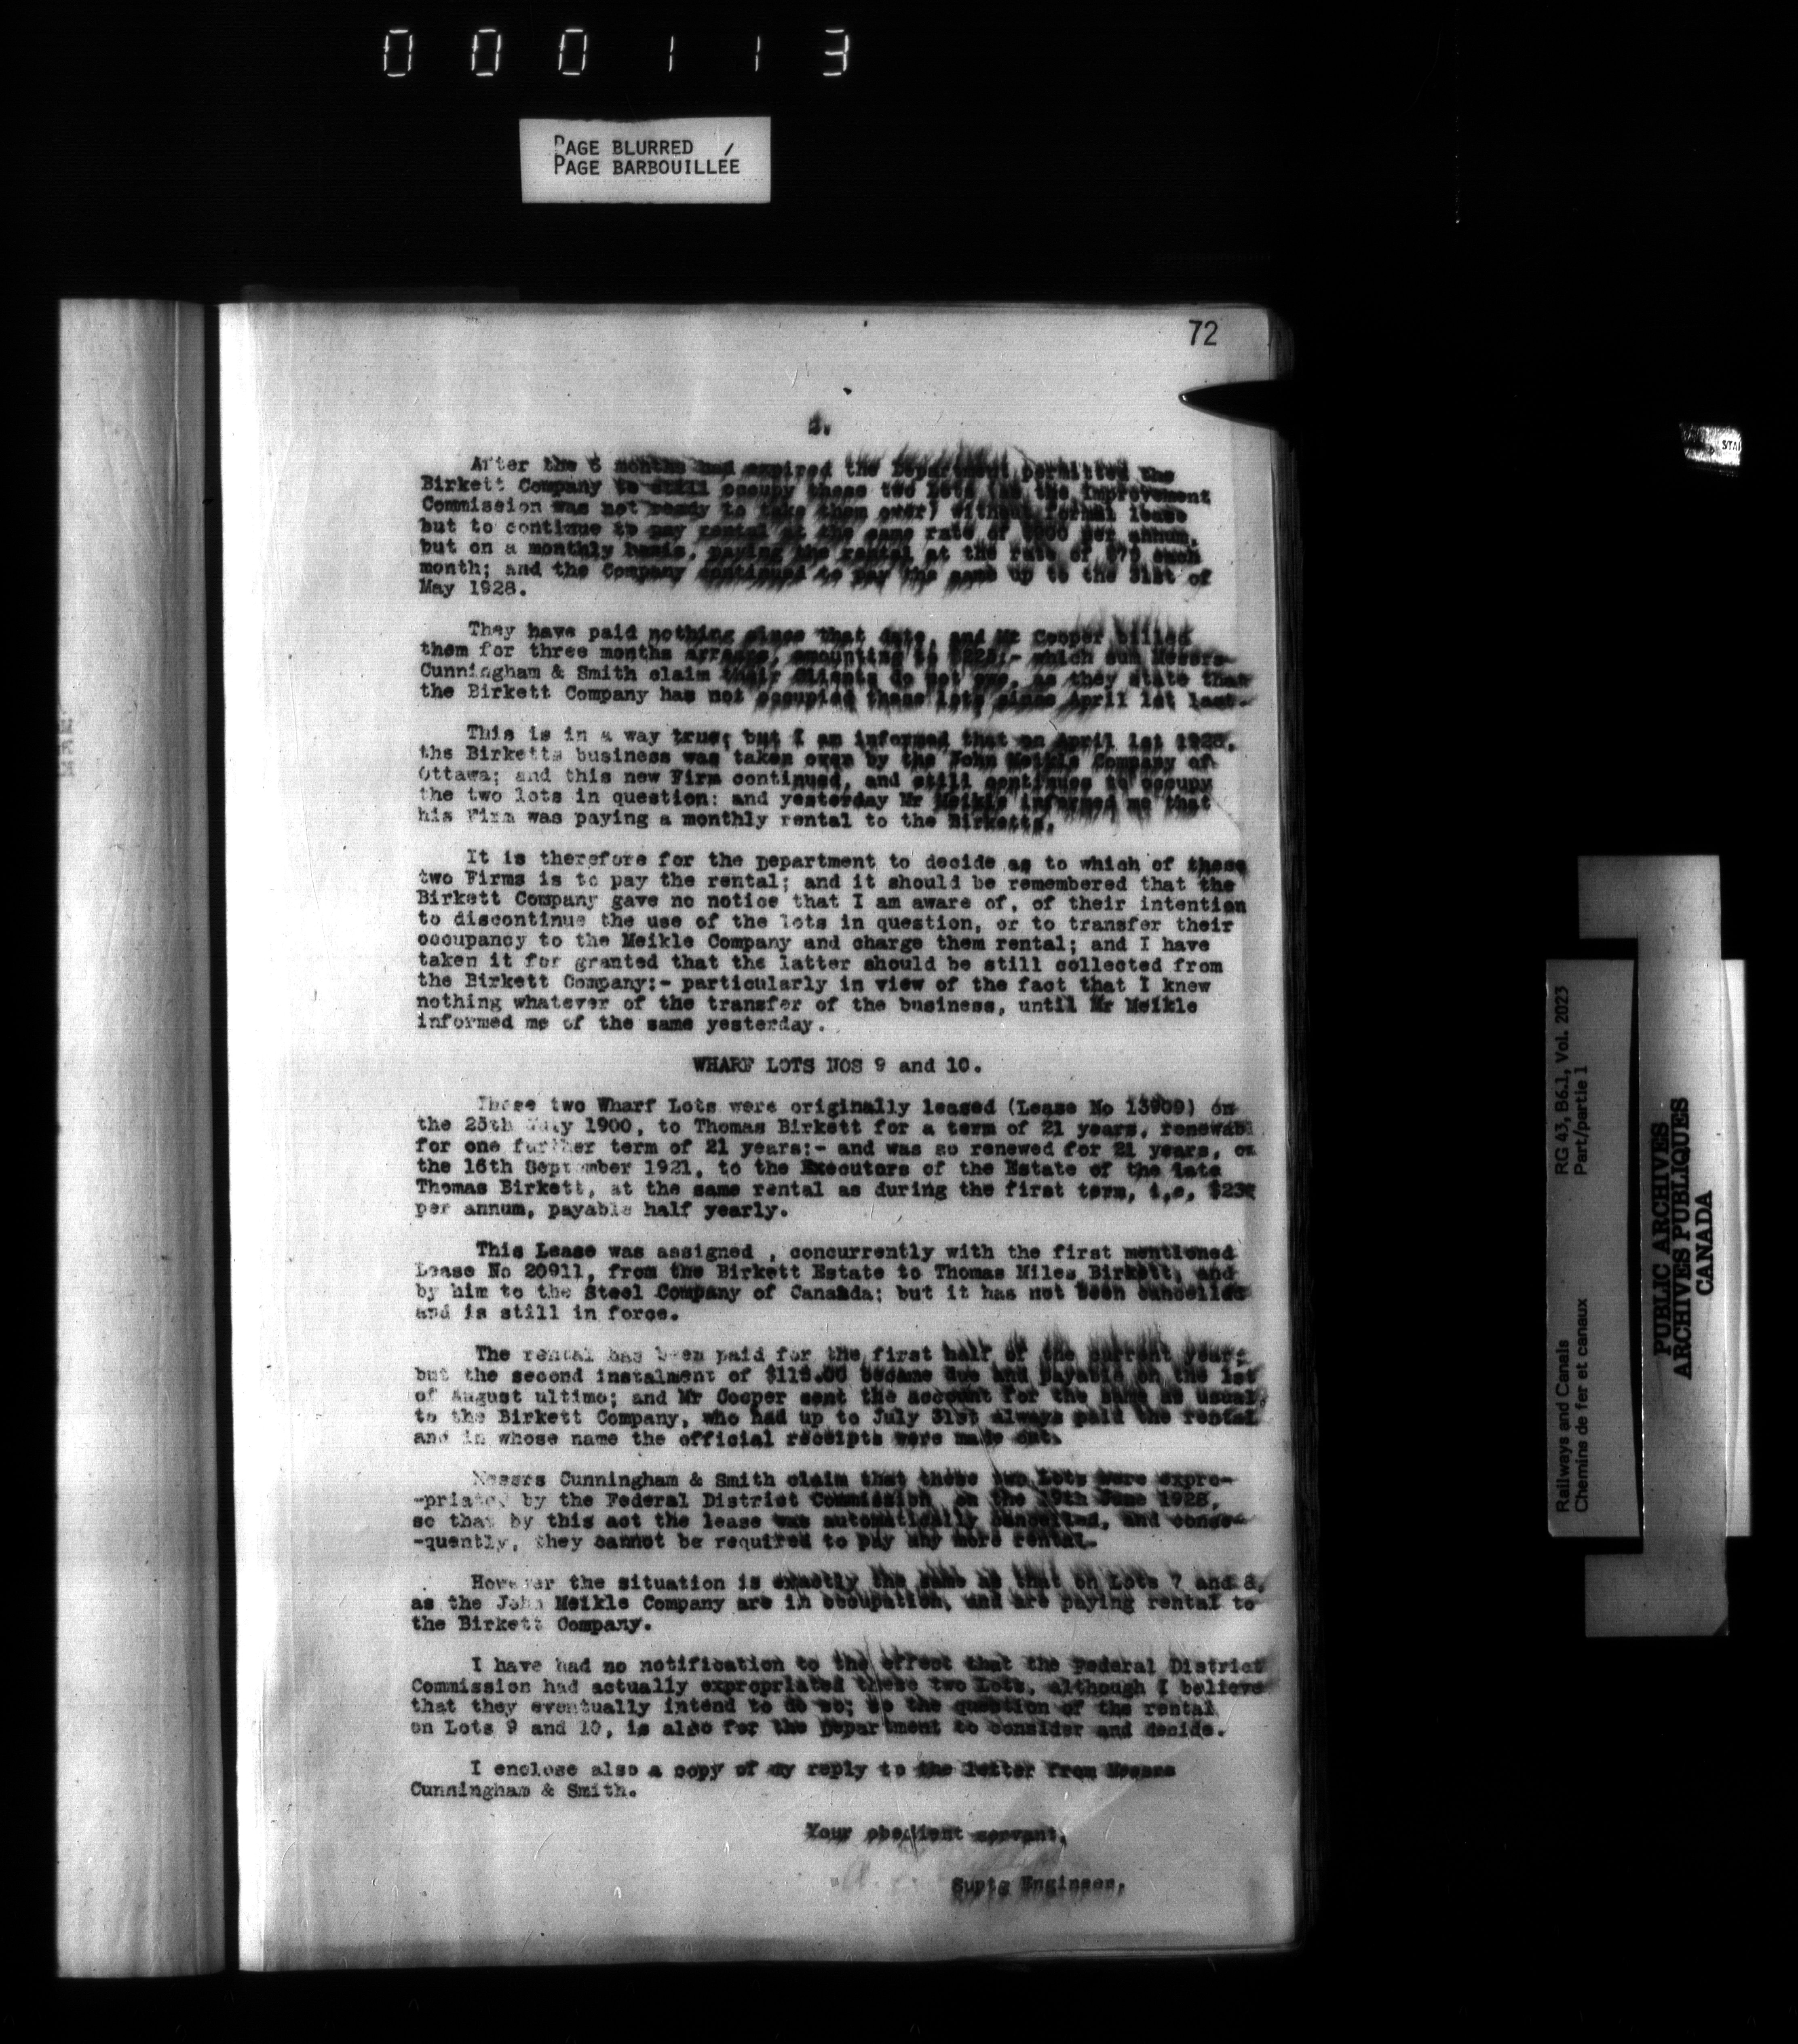 000113
PAGE BLURRED
PAGE BARBOUILLÉE
72
2.
After the 6 months had expired the Department permitted the
Birkett Company to still occupy these two lots (as the Improvement
Commission was not ready to take them over) without formal lease
but to continue to pay rental at the same rate of $900 per annum,
but on a monthly basis, paying the rental at the rate of $75 each
month; and the Company continued to pay the same up to the 31st of
May 1928.
They have paid nothing since that date, and Mr Cooper billed
them for three months arrears, amounting to $225:- which sum Messrs
Cunningham & Smith claim their Clients do not owe, as they state that
the Birkett Company has not occupied these lots since April 1st last.
This is in a way true; but I am informed that on April 1st 1928,
the Birketts business was taken over by the John Meikle Company of
Ottawa; and this new Firm continued, and still continues to occupy
the two lots in question: and yesterday Mr Meikle informed me that
his Firm was paying a monthly rental to the Birketts.
It is therefore for the Department to decide as to which of these
two Firms is to pay the rental; and it should be remembered that the
Birkett Company gave no notice that I am aware of, of their intention
to discontinue the use of the lots in question, or to transfer their
occupancy to the Meikle Company and charge them rental; and I have
taken it for granted that the latter should be still collected from
the Birkett Company:- particularly in view of the fact that I knew
nothing whatever of the transfer of the business, until Mr Meikle
informed me of the same yesterday.
WHARF LOTS NOS 9 and 10.
These two Wharf Lots were originally leased (Lease No 13909) on
the 25th July 1900, to Thomas Birkett for a term of 21 years, renewabl
for one further term of 21 years:- and was so renewed for 21 years, on
the 16th September 1921, to the Executors of the Estate of the late
Thomas Birkett, at the same rental as during the first term, i.e,
per annum, payable half yearly.
This Lease was assigned , concurrently with the first mentioned
Lease No 20911, from the Birkett Estate to Thomas Miles Birkett, and
by him to the Steel Company of Canaada; but it has not been cancelled
and is still in force.
The rental has been paid for the first half of the current year;
but the second instalment of became due and payable on the 1st
of August ultimo; and Mr Cooper sent the account for the same as usual,
to the Birkett Company, who had up to July 31st always paid the rental
and in whose name the official receipts were made out.
Messrs Cunningham & Smith claim that these two Lots were expro-
-priated by the Federal District Commission on the June 1928,
so that by this act the lease was automatically cancelled, and conse-
-quently, they cannot be required to pay any more rental.
However the situation is exactly the same as that on Lots 7 and 8,
as the John Meikle Company are in occupation, and are paying rental to
the Birkett Company.
I have had no notification to the effect that the Federal District
Commission had actually expropriated these two Lots, although I believe
that they eventually intend to do so; so the question of the rental
on Lots 9 and 10, is also for the Department to consider and decide.
I enclose also a copy of my reply to the letter from Messrs
Cunningham & Smith.
Your obedient servant,
Suptg Engineer.
STA
RG 43, B6.1, Vol. 2023
Part/partie 1
Railways and Canals
Chemins de fer et canaux
PUBLIC ARCHIVES
ARCHIVES PUBLIQUES
CANADA